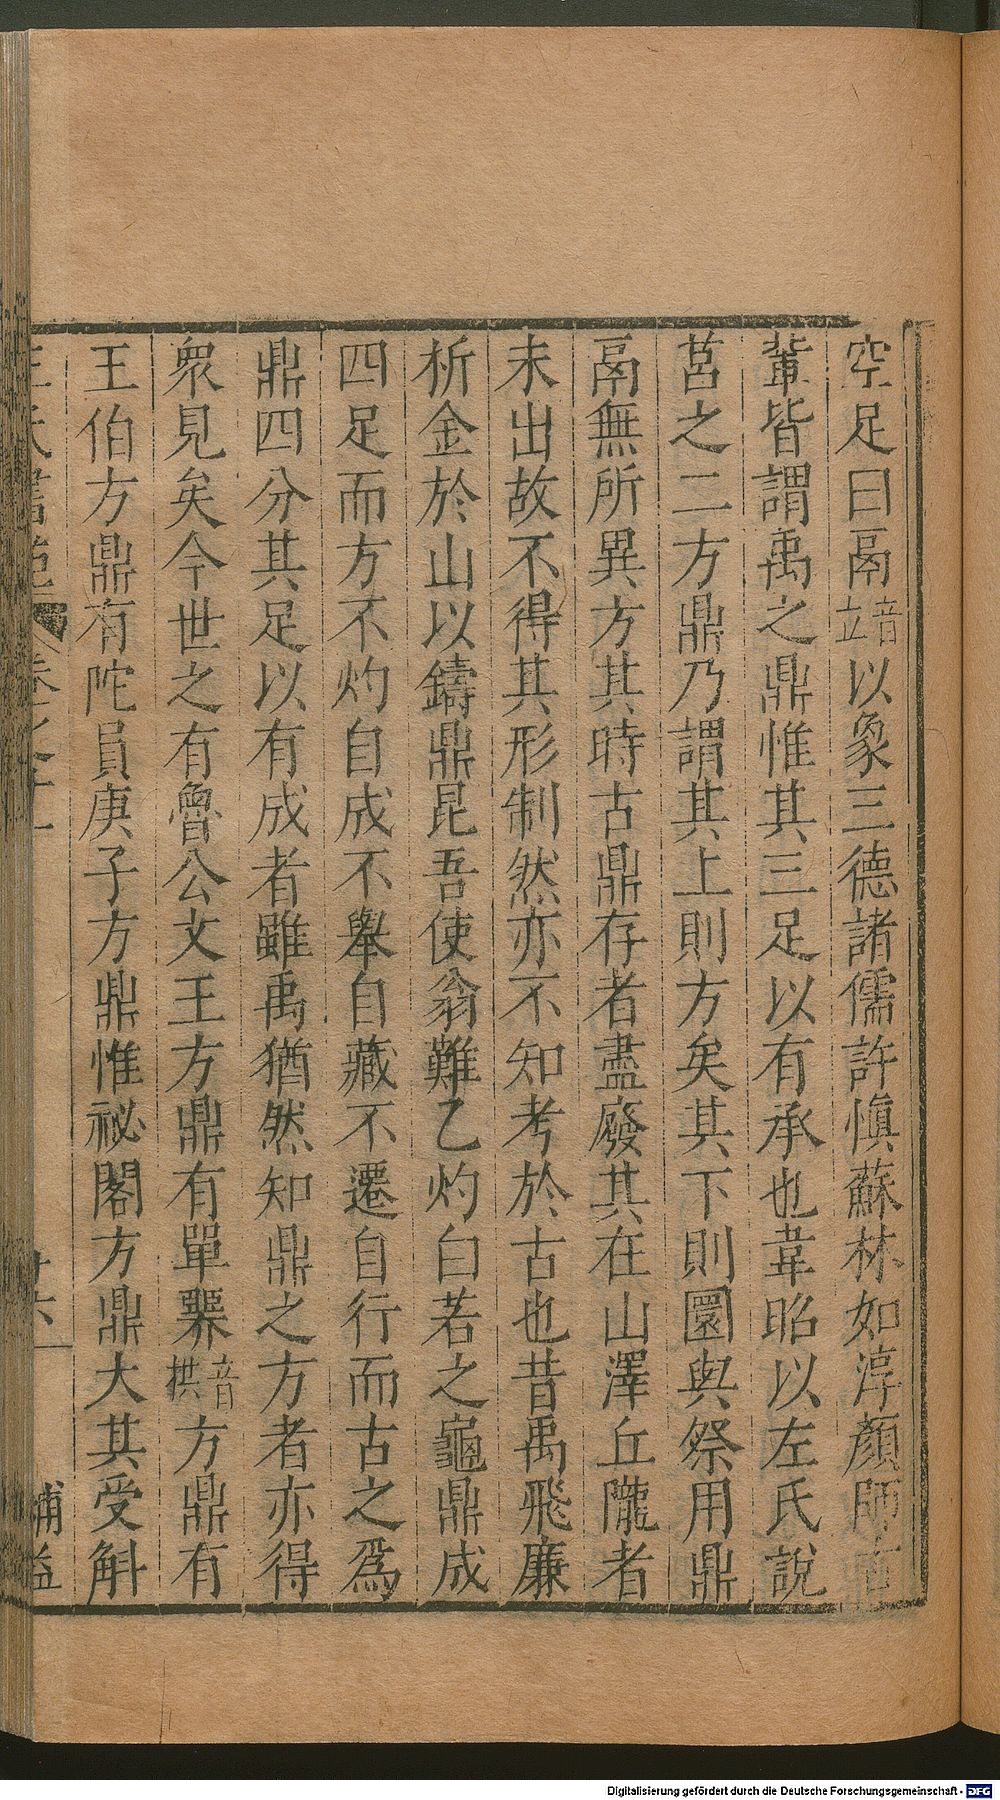 空足曰鬲音立以象三德諸儒許慎蘇林如淳顏師古
輩皆謂禹之鼎惟其三足以有承也韋昭以左氏說
莒之二方鼎乃謂其上則方矣其下則圜與祭用鼎
鬲無所異方其時古鼎存者盡廢其在山澤丘隴者
未出故不得其形制然亦不知考於古也昔禹飛廉
析金於山以鑄鼎昆吾使翁難乙灼白若之龜鼎成
四足而方不灼自成不舉自藏不遷自行而古之為
鼎四分其足以有成者雖禹猶然知鼎之方者亦得
衆見矣今世之有魯公文王方鼎有單㚜音拱方鼎有
王伯方鼎有陀員庚子方鼎惟祕閣方鼎大其受斛
王氏畫苑 卷之十一 廿六 補益
Digitalisierung gefördert durch die Deutsche Forschungsgemeinschaft - DFG